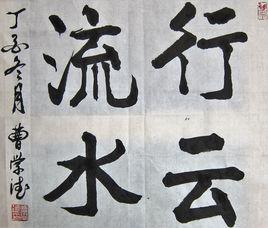 行云
流水
丁亥冬月 曹学德